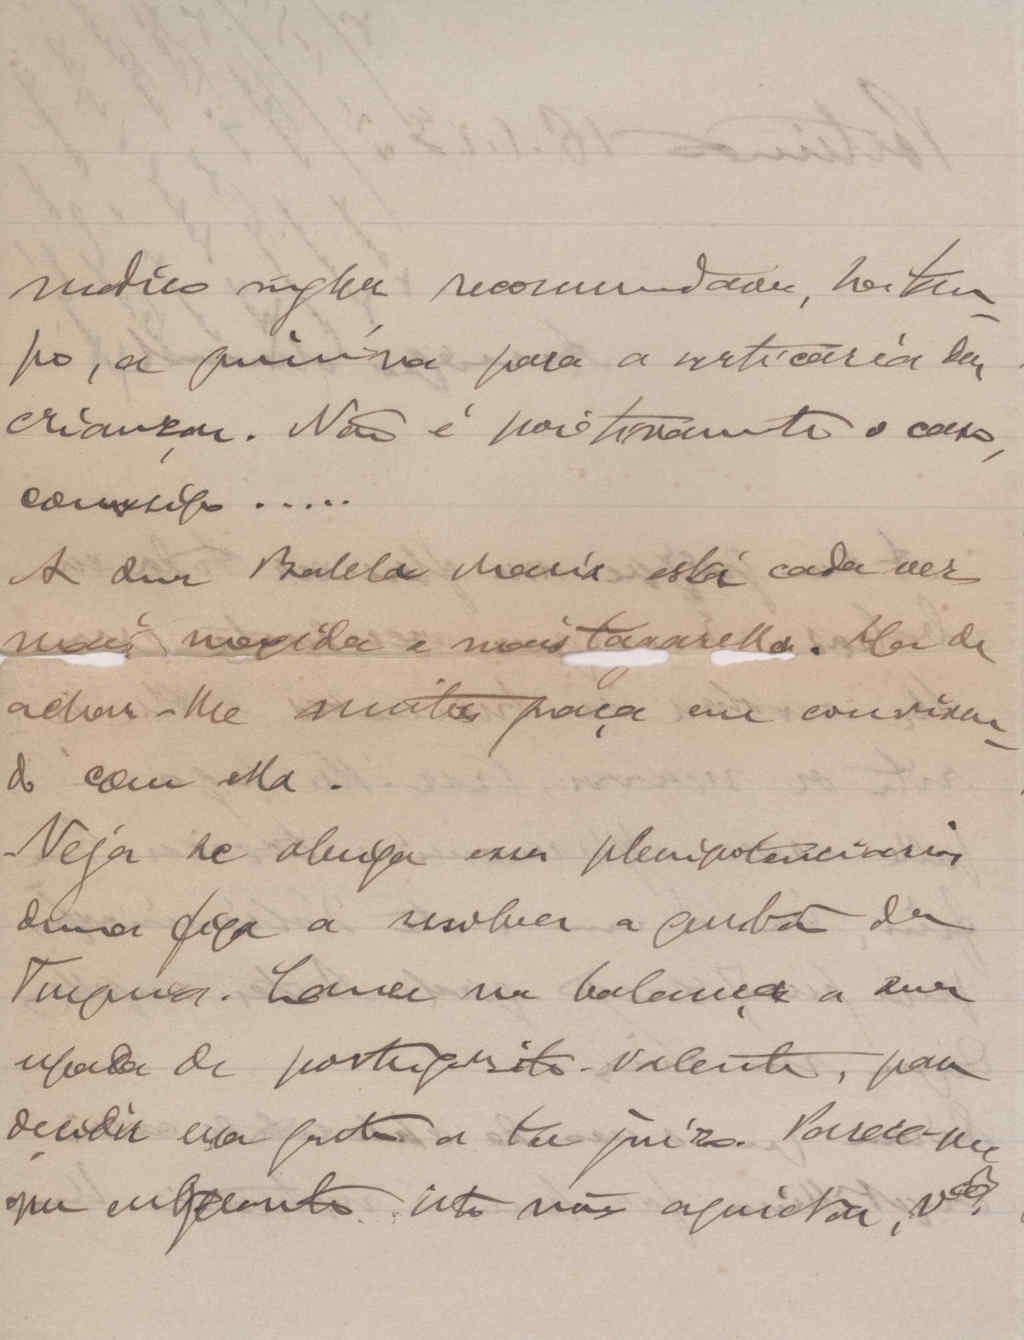 medico inglez recommendava, ha tem-
po, a quinina para a urticaria das
crianças. Não é positivamente o caso,
comsigo .....
A sua Maria está cada vez
mais mexida e mais tagarella. Ha de
achar-lhe muita graça em conversan-
do com ella.
Veja se obriga esses plenipotenciarios
duma figa a resolver a questão da
Turquia. Lance na balança a sua
espada de portuguesito valente, para
decidir essa gente a ter juizo. Parece-me
que emquanto isto não aquietar, V.